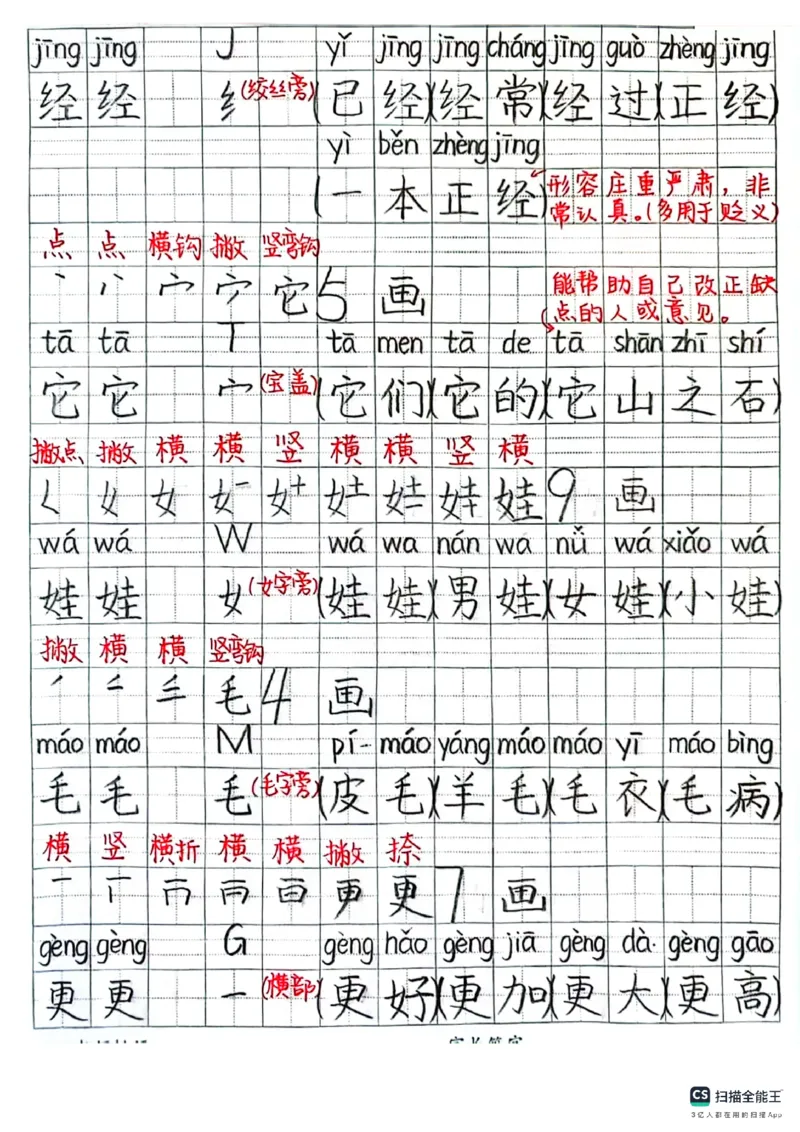 jīng jīng J yǐ jīng jīng cháng jīng guò zhèng jīng
经 经 纟(绞丝旁) (已经)(经常)(经过)(正经)
yì běn zhèng jīng
(一本正经) 形容庄重严肃，非
常认真。(多用于贬义)
点 点 横钩 撇 竖弯钩
它 5画
能帮助自己改正缺
点的人或意见。
tā tā T tā men tā de tā shān zhī shí
它 它 宀(宝盖) (它们)(它的)(它山之石)
撇点 撇 横 横 竖 横 横 竖 横
く 女 女 娃 9画
wá wá W wá wa nán wá nǚ wá xiǎo wá
娃 娃 女(女字旁) (娃娃)(男娃)(女娃)(小娃)
撇 横 横 竖弯钩
毛 4画
máo máo M pí máo yáng máo máo yī máo bìng
毛 毛 毛(毛字旁) (皮毛)(羊毛)(毛衣)(毛病)
横 竖 横折 横 横 撇 捺
更 7画
gèng gèng G gèng hǎo gèng jiā gèng dà gèng gāo
更 更 一(横部) (更好)(更加)(更大)(更高)
CS 扫描全能王
3亿人都在用的扫描App